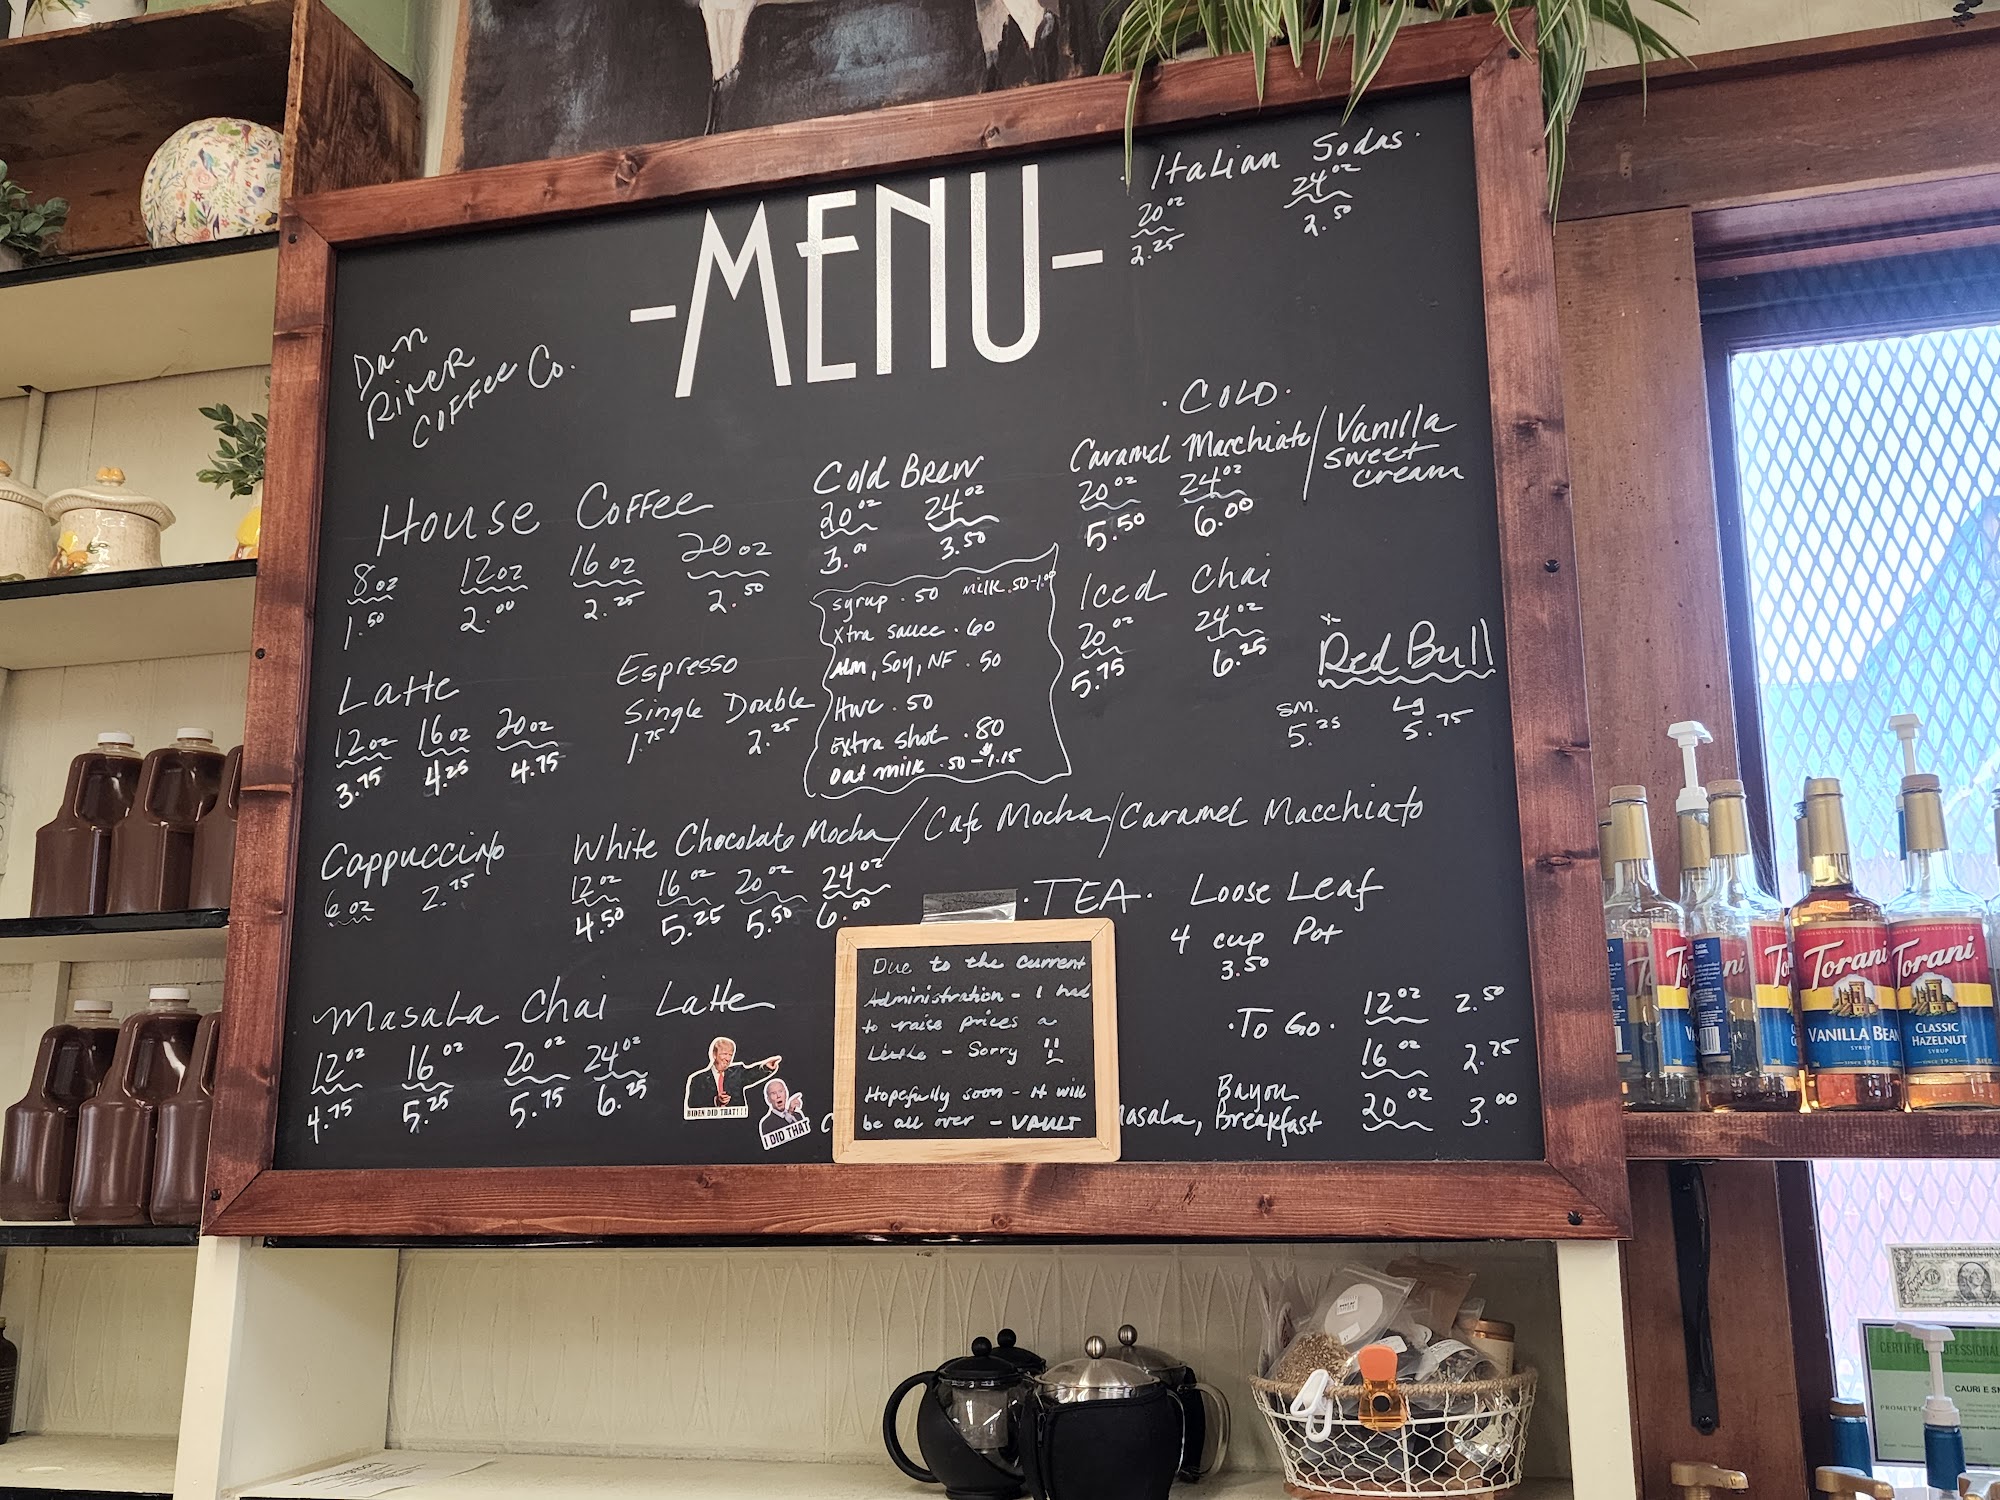 -MENU-
Dan
River
Coffee Co.
· Italian Sodas ·
20 oz 24 oz
2.25 2.50
House Coffee
8 oz 12 oz 16 oz 20 oz
1.50 2.00 2.25 2.50
Cold Brew
20 oz 24 oz
3.00 3.50
· COLD ·
Caramel Macchiato / Vanilla
sweet
cream
20 oz 24 oz
5.50 6.00
Iced Chai
20 oz 24 oz
5.75 6.25
Red Bull
SM. Lg
5.25 5.75
syrup .50 milk .50-1.00
Xtra sauce .60
Alm, Soy, NF .50
Hwc .50
Extra shot .80
Oat milk .50-1.15
Latte
12 oz 16 oz 20 oz
3.75 4.25 4.75
Espresso
Single Double
1.75 2.25
Cappuccino
6 oz 2.75
White Chocolate Mocha / Cafe Mocha / Caramel Macchiato
12 oz 16 oz 20 oz 24 oz
4.50 5.25 5.50 6.00
· TEA · Loose Leaf
4 cup Pot
3.50
· To Go · 12 oz 2.50
16 oz 2.75
20 oz 3.00
Bayou
Masala, Breakfast
Masala Chai Latte
12 oz 16 oz 20 oz 24 oz
4.75 5.25 5.75 6.25
BIDEN DID THAT!!!
I DID THAT
Due to the current
Administration - I had
to raise prices a
little - Sorry !!
Hopefully soon - it will
be all over - VAULT
Torani
VANILLA BEAN
SYRUP
SINCE 1925
Torani
CLASSIC
HAZELNUT
SYRUP
SINCE 1925
CAURI E